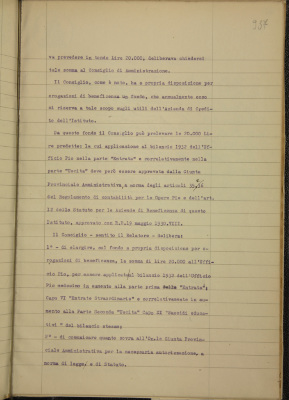 va prendere in tondo Lire 20.000, deliberare chiedersi
tale somma al Consiglio di Amministrazione.
Il Consiglio, come è noto, ha a propria disposizione per
erogazioni di beneficenza un fondo, che annualmente esso
si riserva a tale scopo sugli utili dell'Azienda di Credi-
to dell'Istituto.
Da questo fondo il Consiglio può prelevare le 20.000 li-
re predette: la cui applicazione al bilancio 1932 dell'Uf-
ficio Pio nella parte "Entrata" e correlativamente nella
parte "Uscita" deve però essere approvata dalla Giunta
Provinciale Amministrativa, a norma degli articoli 35,36
del Regolamento di contabilità per le Opere Pie e dell'Art.
dello Statuto per le aziende di Beneficenza di questo
Istituto, approvato con R.D. maggio 1930.VIII.
Il Consiglio - sentito il Relatore - delibera:
1° - di elargire, sul fondo a propria disposizione per e-
rogazioni di beneficenza, la somma di lire 20.000 all'Uffi-
cio Pio, per essere applicate al bilancio 1932 dell'Ufficio
Pio medesimo in aumento alla parte prima "Entrata",
Capo VI "Entrate Straordinarie" e correlativamente in au-
mento alla Parte Seconda "Uscita" Capo II "Sussidi
" del bilancio stesso;
2° - di promuovere quanto sovra all'On.le Giunta Provin-
ciale Amministrativa per la necessaria autorizzazione, a
norma di legge, e di Statuto.